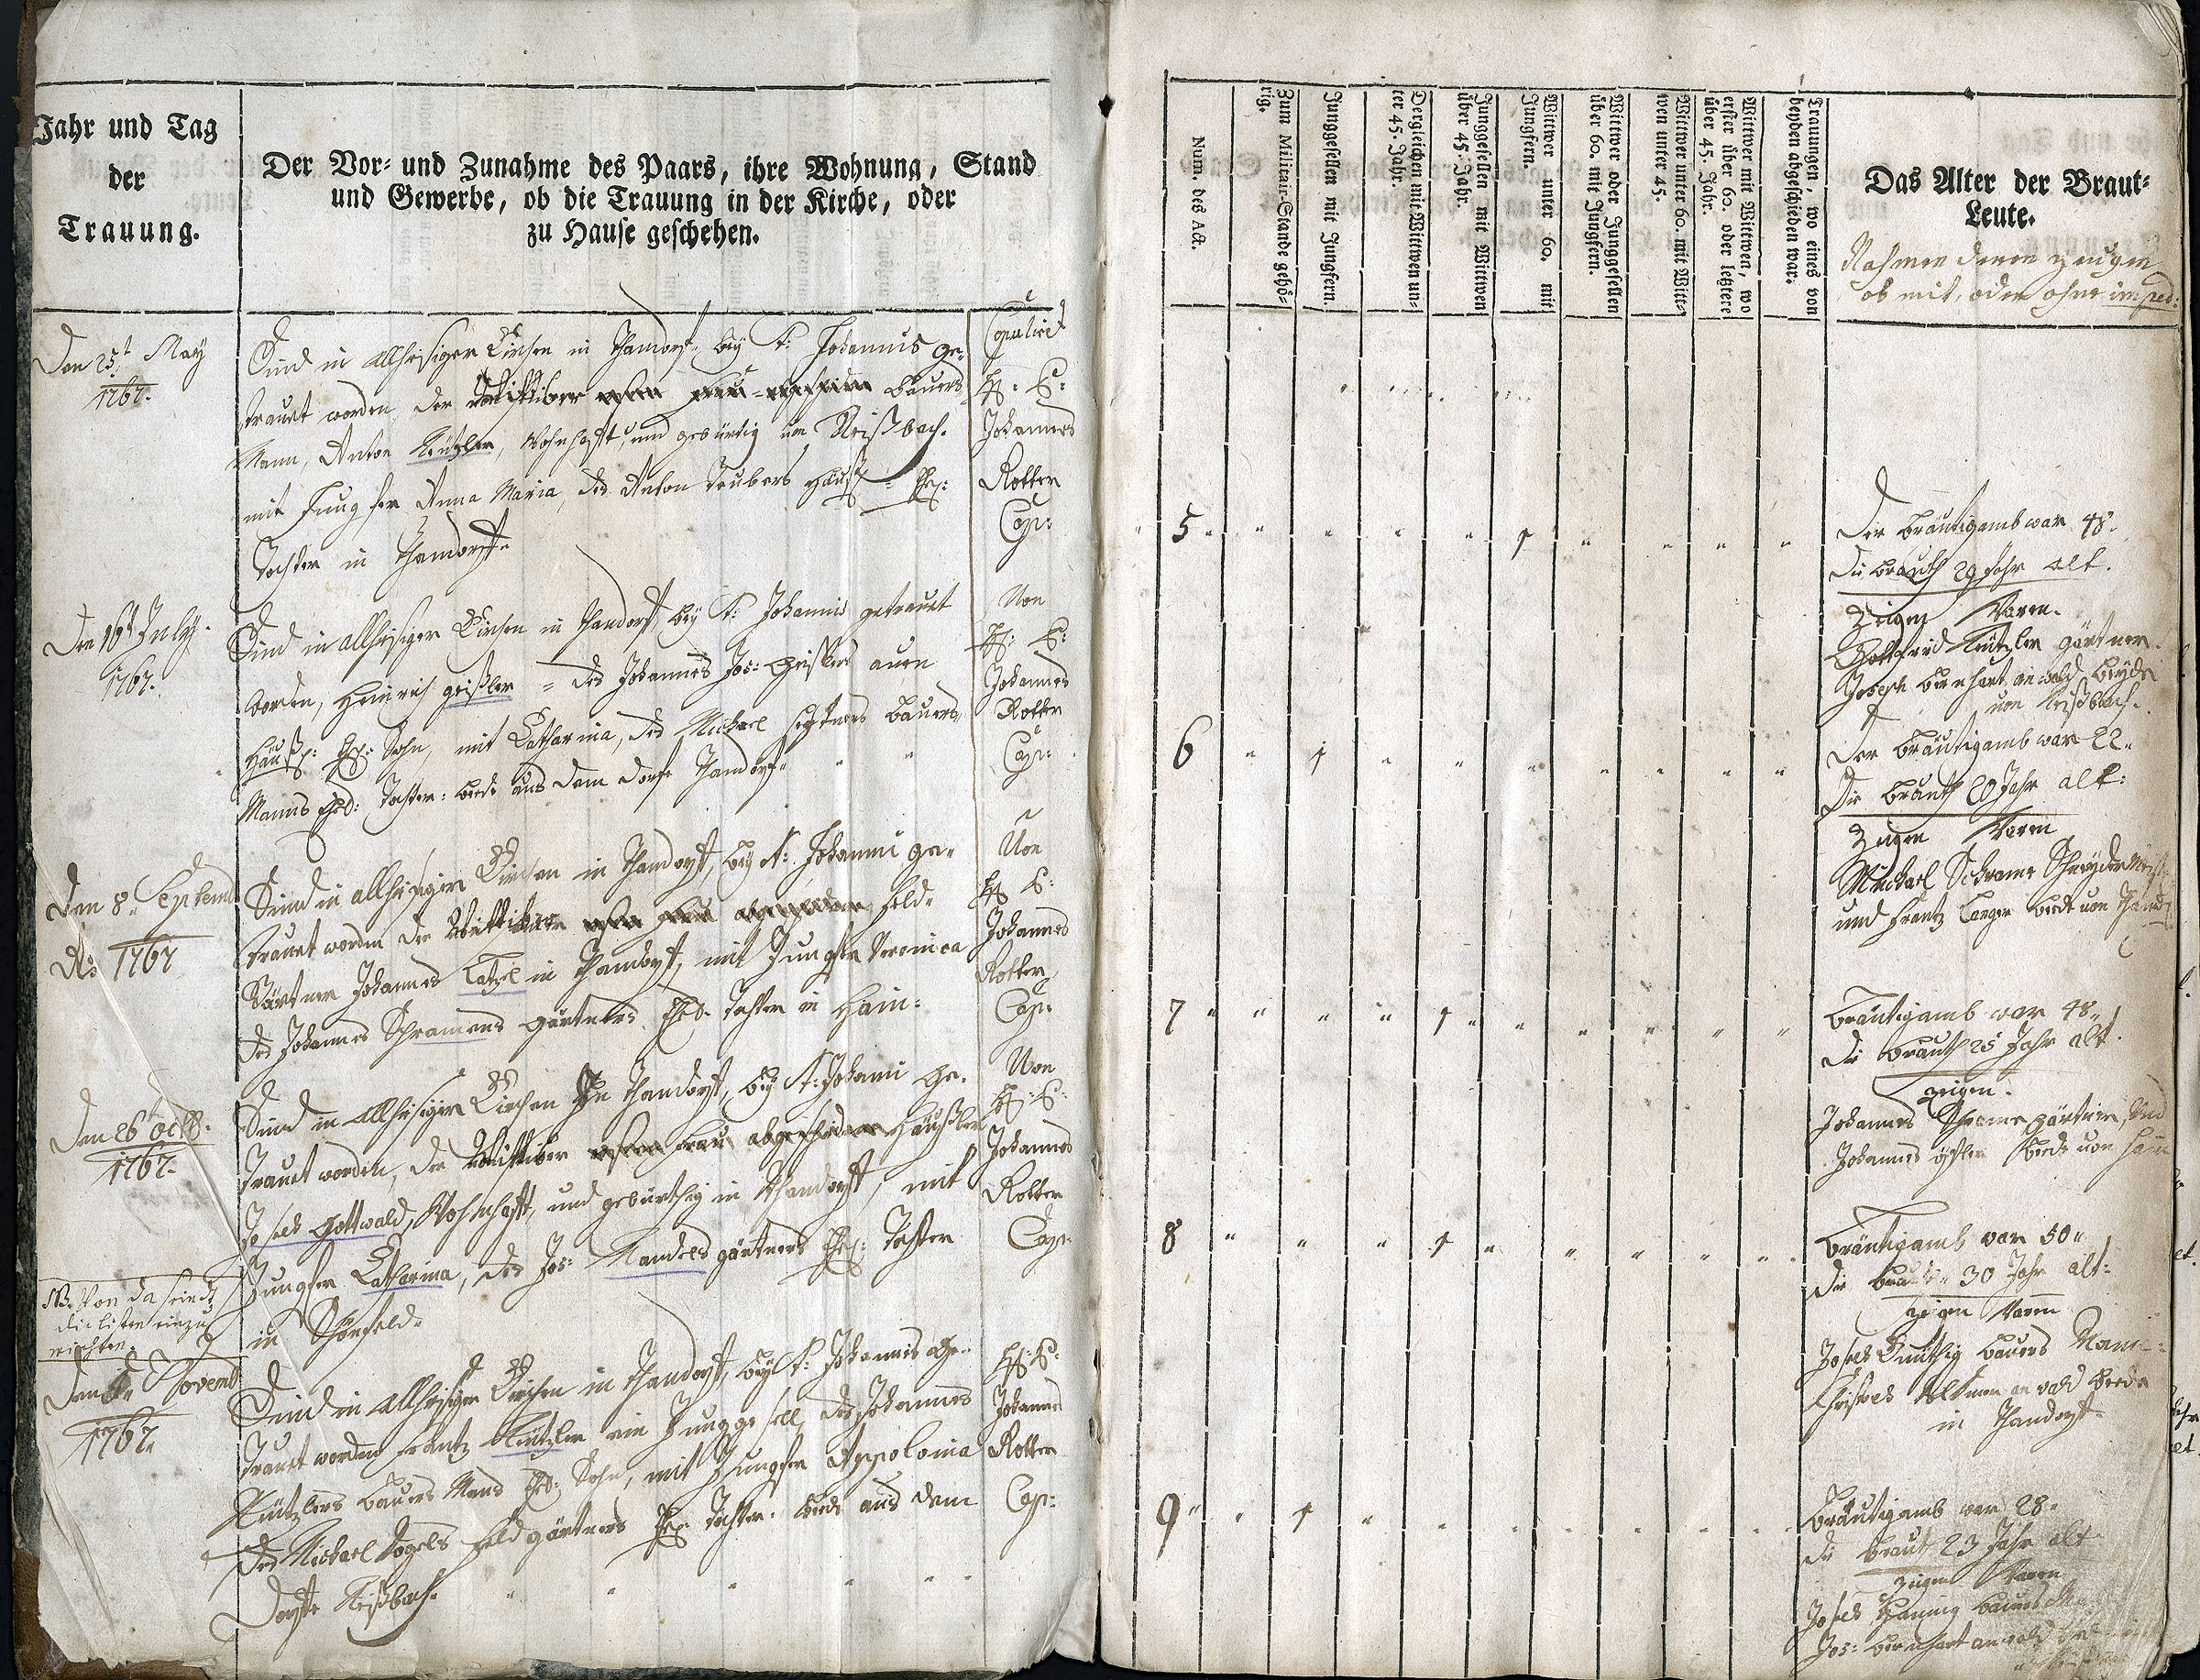 Jahr und Tag
der
Trauung.
Der Vor- und Zunahme des Paars, ihre Wohnung, Stand
und Gewerbe, ob die Trauung in der Kirche, oder
zu Hause geschehen.
Den 25t May
1767.
Sind in allhisiger Kirchen in Thandorf bey St: Johannis ge-
trauet worden, der Wittiber bauers
Mann, Anton Kintzler, Wohnhafft, und gebürtig von Neißbach.
mit Jungfer Anna Maria, des Anton Teubers Häußl:
Tochter in Thandorff
Copulirt
Johannes
Rotter
Cap:
Den 16t July.
1767.
Sind in allhisiger Kirchen in Thandorf, bey St: Johannis getrauet
worden, Heinrich geißler = des Johannes Jos: Geißlers
Häußl: Sohn, mit Catharina, des Michael bauers
Manns Tochter: beede aus dem dorfe Thandorf
Von
Johannes
Rotter
Cap:
Den 8. Septemb
1767
Sind in allhisiger Kirchen in Thandorf, bey St: Johanni ge-
trauet worden der Wittiber feld-
Gärtner Johannes Katzel in Thandorf, mit Jungfer Veronica
des Johannes Schramens gärtners Tochter in Hain:
Von
Johannes
Rotter
Cap:
Den 26t octb.
1767.
Sind in allhisiger Kirchen in Thandorf, bey St: Johani ge-
trauet worden, der Wittiber Frau abgeschieden Häußler
Joseph Gottwald, Wohnhafft, und gebürthig in Thandorff, mit
Jungfer Catharina, des Jos: Mandels gärtners Tochter
in Schönfeld.
Von
Johannes
Rotter
Cap:
NB. Von da seind
die listen einzu
richten.
Novemb
1767.
Sind in allhisiger Kirchen in Thandorf, bey St: Johannis ge-
trauet worden Frantz Kintzler ein Junggesell, des Johannes
Kintzlers bauers Mans Sohn, mit Jungfer Appolonia
des Michael Vogels feldgärtners Tochter. beede aus dem
Dorffe Neißbach.
Johannes
Rotter
Cap:
Num. des Act.
Zum Militair-Stande gehö-
rig.
Junggesellen mit Jungfern.
Dergleichen mit Wittwen un-
ter 45. Jahr.
Junggesellen mit Wittwen
über 45. Jahr.
Wittwer unter 60. mit
Jungfern.
Wittwer oder Junggesellen
über 60. mit Jungfern.
Wittwer unter 60. mit Witt-
wen unter 45.
Wittwer mit Wittwen, wo
erster über 60. oder letztere
über 45. Jahr.
Trauungen, wo eines von
beyden abgeschieden war.
Das Alter der Braut-
Leute.
Nahmen deren zeugen
ob mit, oder ohne imped:
5 1
Der Bräutigamb war 48.
die brauth 29 Jahr alt.
Zeigen Waren.
Gottfrid Kintzler gärtner
Joseph Bernhart beyde
von Neißbach.
6 1
Der Bräutigamb war 22.
Die brauth 20 Jahr alt:
Zeigen Waren
Michael Schrame
und Frantz Langer beede von
7 1
Bräutigamb war 48.
die brauth 25 Jahr alt.
zeigen.
Johannes Schrame gärtner, Und
Johannes beede von Hain
8 1
Bräutigamb war 50.
die brauth 30 Jahr alt:
zeigen Waren
Joseph bauers Mann:
beede
in Thandorf
9 1
Bräutigamb war 28.
die braut 23 Jahr alt
zeigen Waren
Joseph
Jos: Bernhart